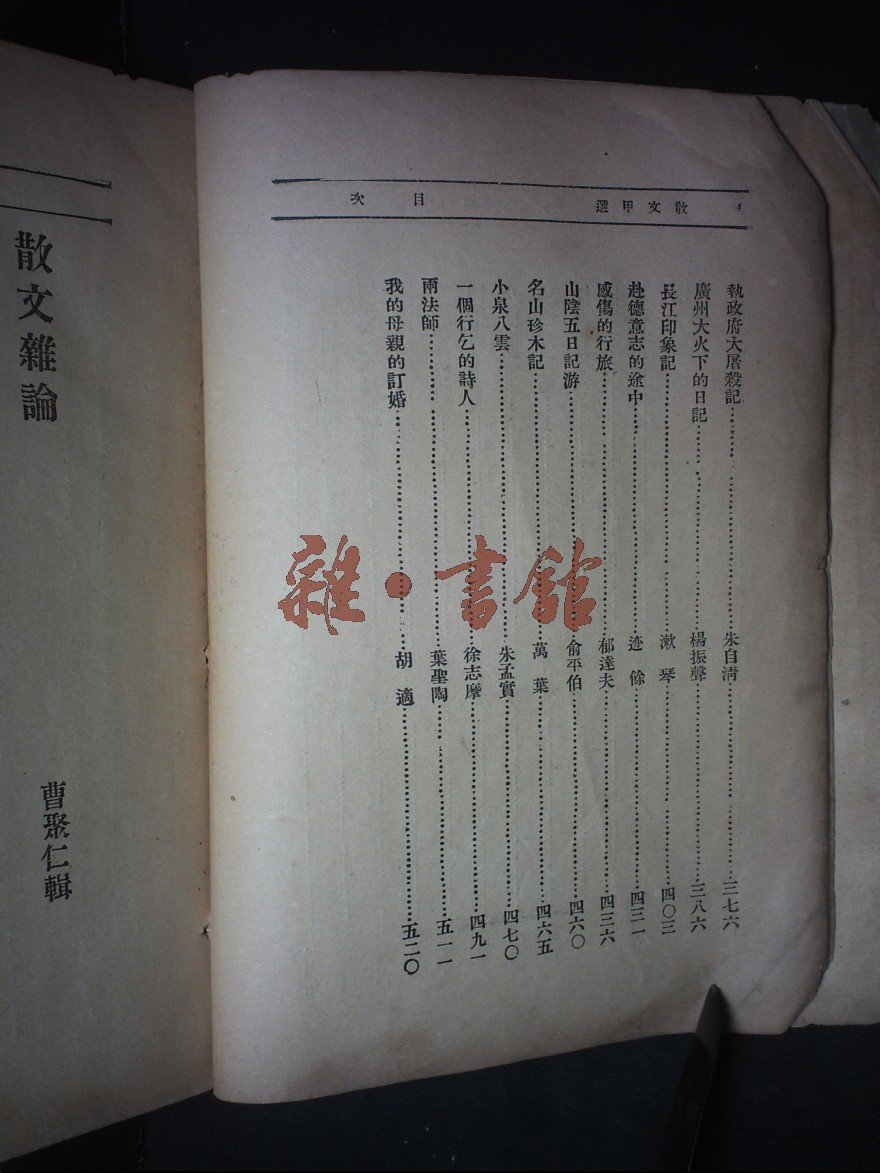 4 散文甲選 目次
執政府大屠殺記 朱自淸 三七六
廣州大火下的日記 楊振聲 三八六
長江印象記 漱琴 四〇三
赴德意志的途中 迹餘 四三一
感傷的行旅 郁達夫 四三六
山陰五日記游 俞平伯 四六〇
名山珍木記 萬葉 四六五
小泉八雲 朱孟實 四七〇
一個行乞的詩人 徐志摩 四九一
兩法師 葉聖陶 五一一
我的母親的訂婚 胡適 五二〇
散文雜論
曹聚仁輯
雜·書館